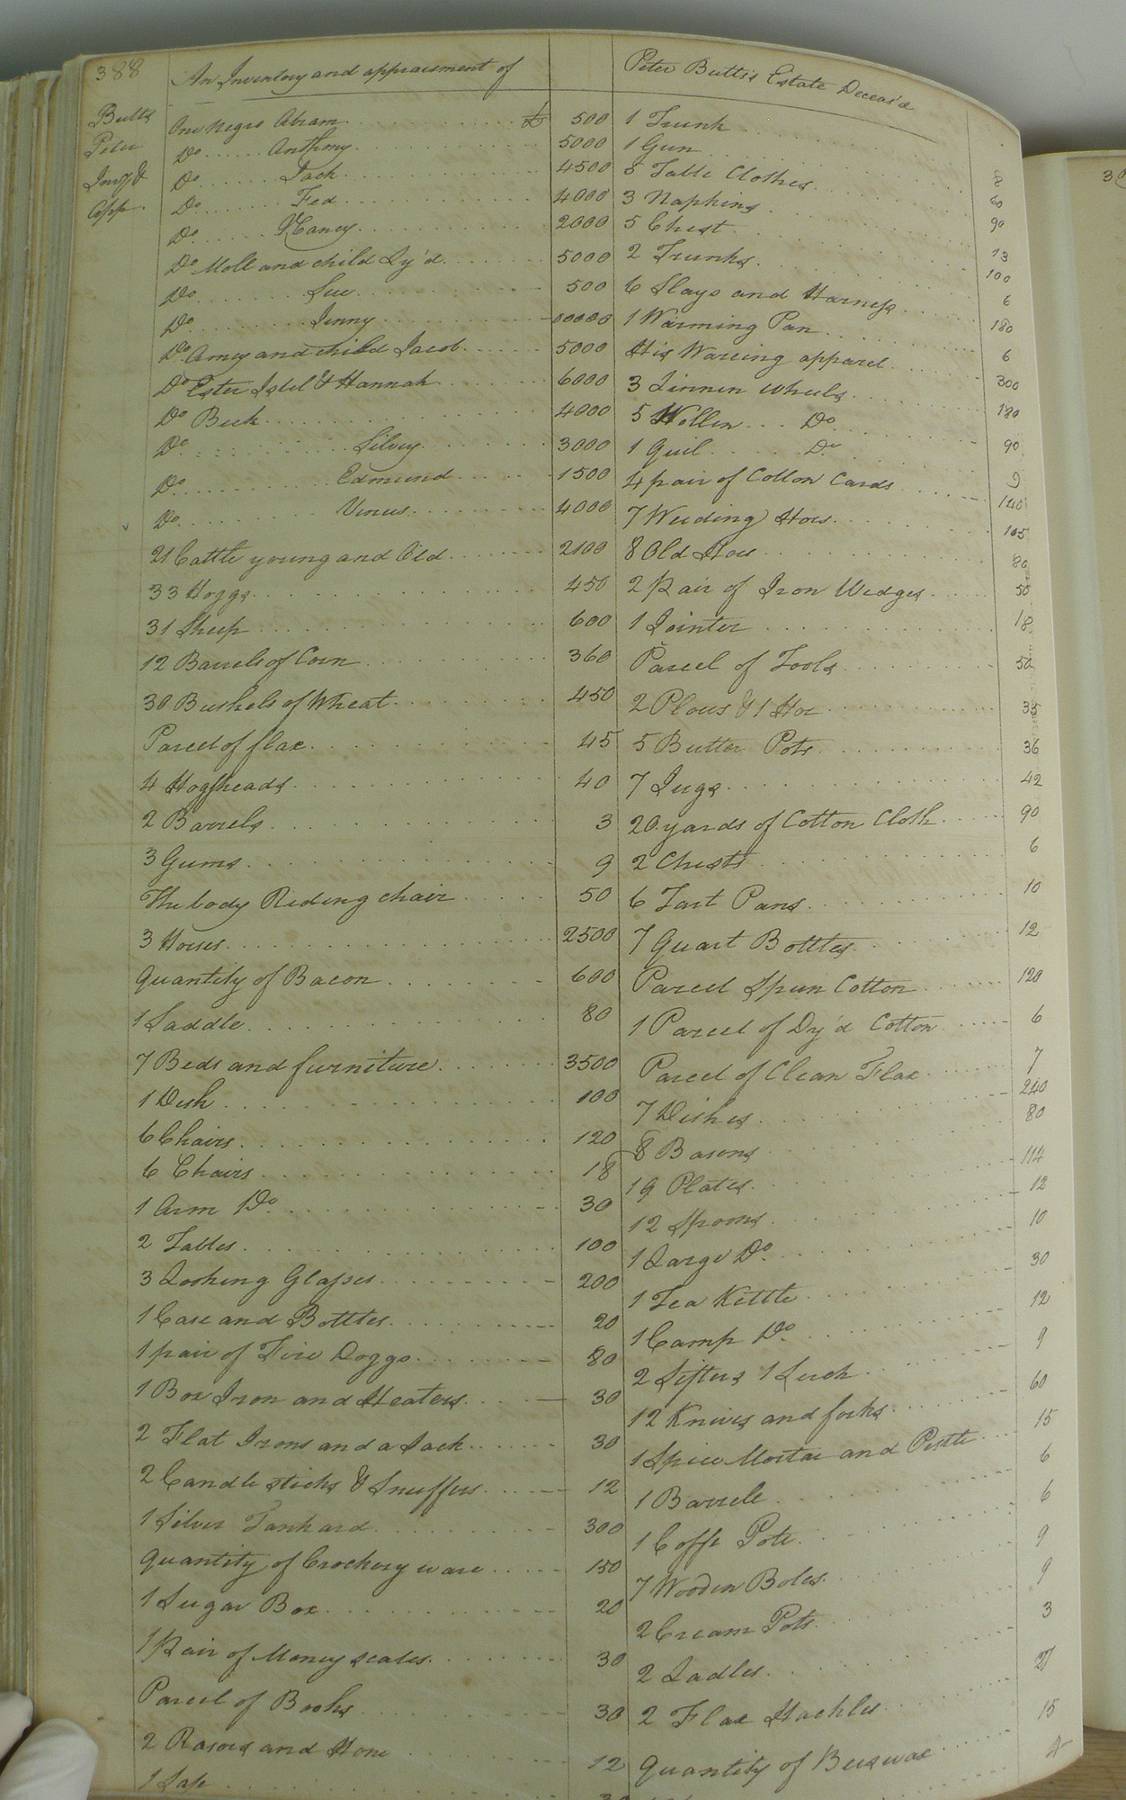 388
An Inventory and appraisment of
Butts
Peter
Invy &
App.
One Negro Abram £ 500
Do Anthony 5000
Do Jack 4500
Do Fed 4000
Do Nancy 2000
Do Moll and child Ly'd 5000
Do Sue 500
Do Jinny 00000
Do Amey and child Jacob 5000
Do Ester Isbel & Hannah 6000
Do Beck 4000
Do Silvey 3000
Do Edmund 1500
Do Venus 4000
21 Cattle young and Old 2100
33 Hoggs 450
31 Sheep 600
12 Barrels of Corn 360
30 Bushels of Wheat 450
Parcel of flax 45
4 Hogsheads 40
2 Barrels 3
3 Gums 9
The body Riding chair 50
3 Horses 2500
Quantity of Bacon 600
1 Saddle 80
7 Beds and furniture 3500
1 Desk 100
6 Chairs 120
6 Chairs 18
1 Arm Do 30
2 Tables 100
3 Looking Glasses 200
1 Case and Bottles 20
1 pair of Fire Doggs 80
1 Box Iron and Heaters 30
2 Flat Irons and a Jack 30
2 Candle sticks & Snuffers 12
1 Silver Tankard 300
Quantity of Crockery ware 150
1 Sugar Box 20
1 Pair of Money scales 30
Parcel of Books 30
2 Rasors and Hone 12
1 Safe
Peter Butts's Estate Deceas'd
1 Trunk 8
1 Gun 60
8 Table Clothes 90
3 Napkins 13
5 Chest 100
2 Trunks 6
6 Slays and Harness 180
1 Warming Pan 6
His Wareing apparel 300
3 Linnen Wheels 180
5 Wollen Do 90
1 Quil Do 9
4 pair of Cotton Cards 140
7 Weeding Hoes 105
8 Old Hoes 80
2 Pair of Iron Wedges 50
1 Jointer 18
Parcel of Tools 50
2 Plows & 1 Hoe 35
5 Butter Pots 36
7 Jugs 42
20 yards of Cotton Cloth 90
2 Chests 6
6 Tart Pans 10
7 Quart Bottles 12
Parcel Spun Cotton 120
1 Parcel of Dy'd Cotton 6
Parcel of Clean Flax 7
7 Dishes 240
8 Basons 80
19 Plates 114
12 Spoons 12
1 Large Do 10
1 Tea Kittle 30
1 Camp Do 12
2 Sifters 1 Serch 9
12 Knives and forks 60
1 Spice Mortar and Pestle 15
1 Barrele 6
1 Coffe Pote 6
7 Wooden Boles 9
2 Cream Pots 9
2 Ladles 3
2 Flax Hackles 21
Quantity of Beeswax 15
3